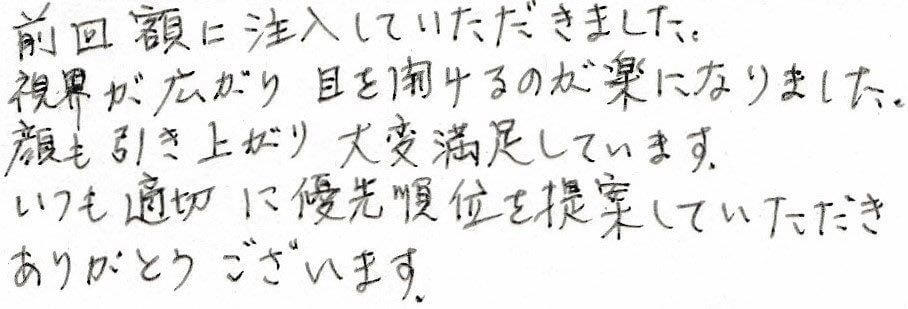 前回額に注入していただきました。
視界が広がり 目を開けるのが楽になりました。
顔も引き上がり 大変満足しています。
いつも適切に優先順位を提案していただき
ありがとうございます。